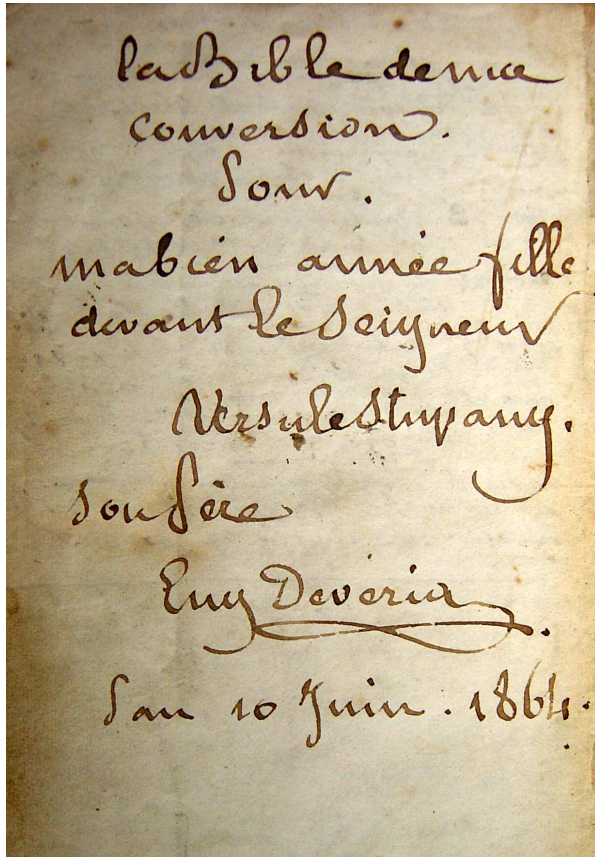 la Bible de ma
conversion.
Pour.
ma bien aimée fille
devant le Seigneur
Ursule Stupany.
son Père
Eug Devéria
Pau 10 Juin. 1864.